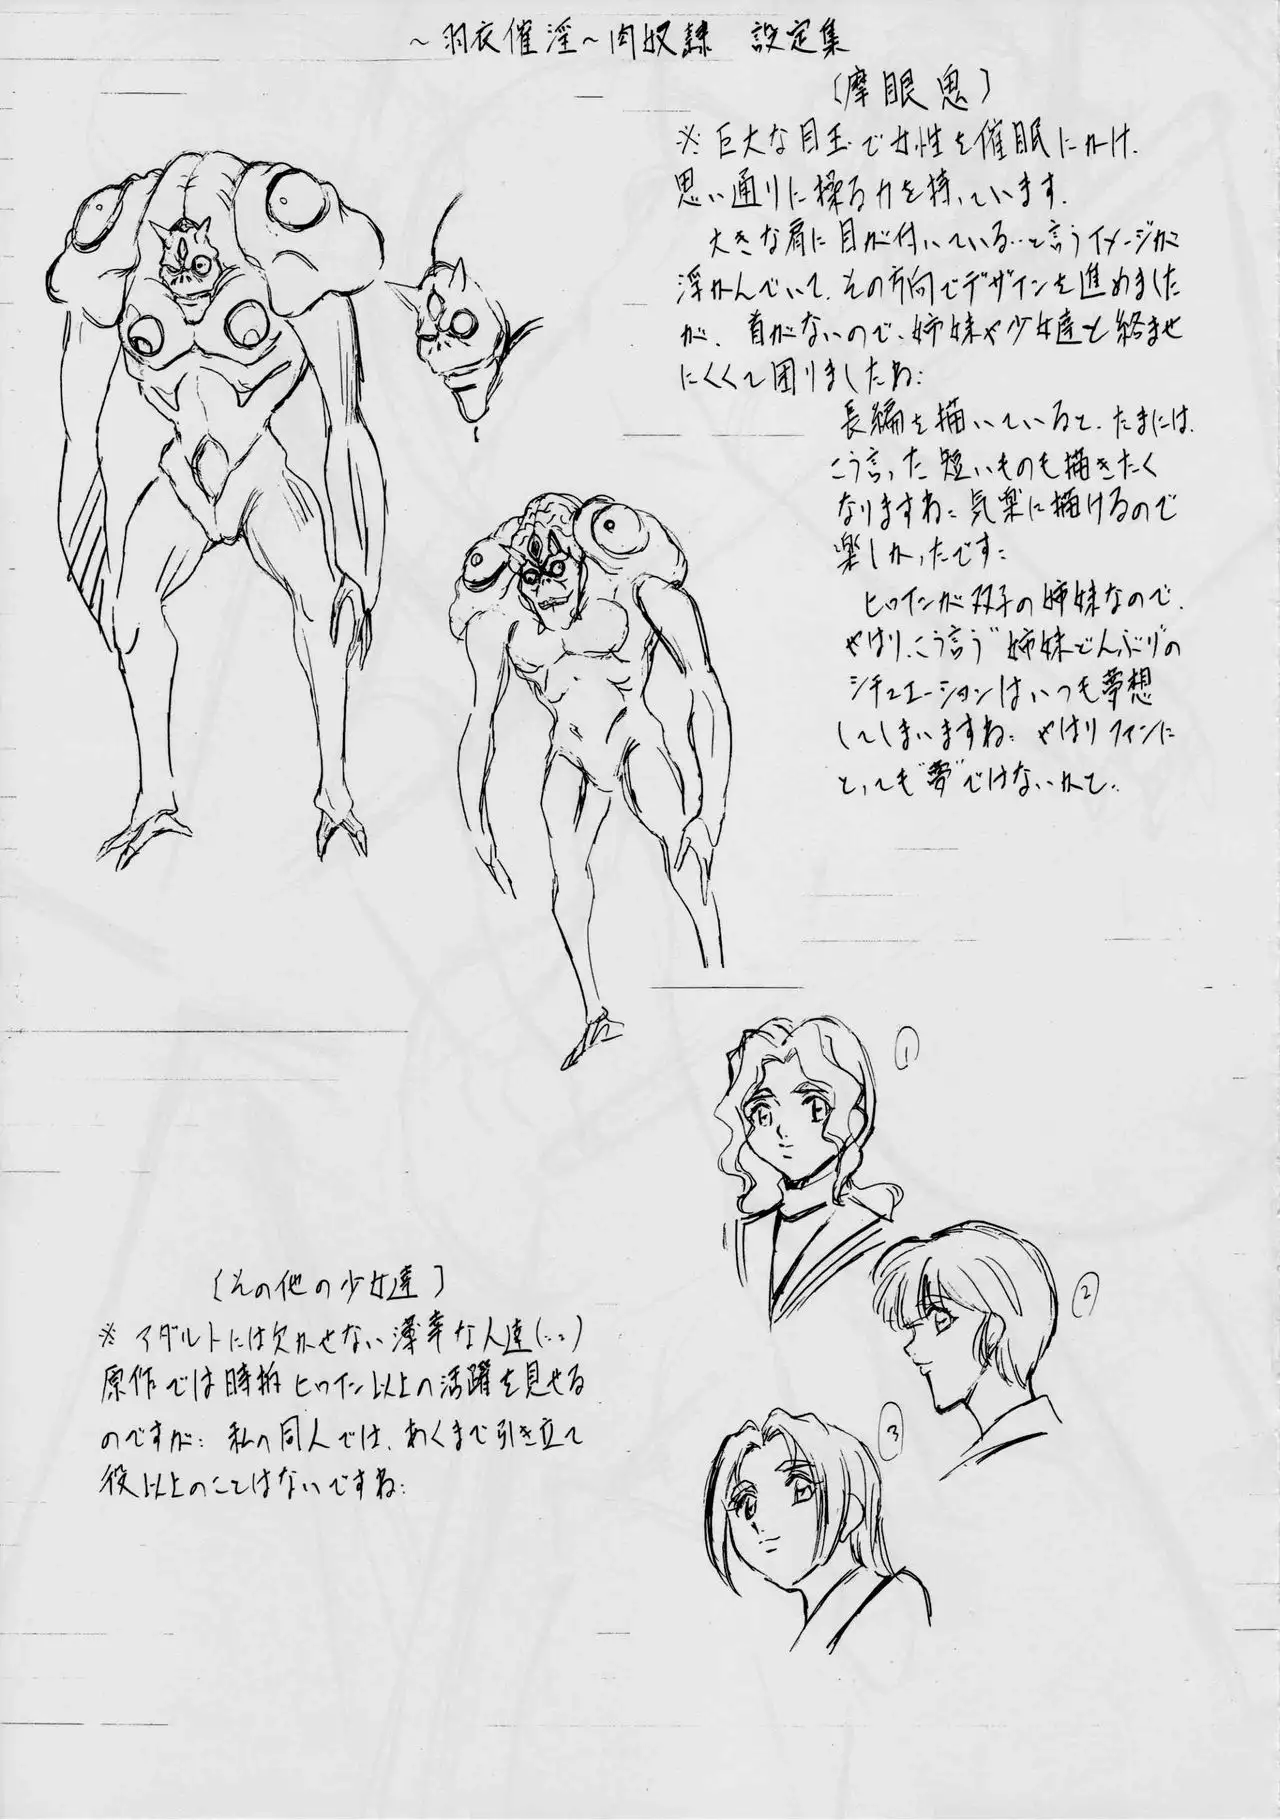 ～羽衣催淫～肉奴隷 設定集
〔摩眼鬼〕
※巨大な目玉で女性を催眠にかけ、
思い通りに操る力を持っています。
大きな肩に目が付いている…と言うイメージが
浮かんでいて、その方向でデザインを進めました
が、首がないので、姉妹や少女達と絡ませ
にくくて困りましたね…
長編を描いていると、たまには、
こう言った短いものも描きたく
なりますね…気楽に描けるので
楽しかったです…
ヒロインが双子の姉妹なので、
やはり、こう言う”姉妹どんぶり”の
シチュエーションはいつも夢想
してしまいますね… やはりファンに
とっても”夢”ではないかと…
①
②
③
〔その他の少女達〕
※アダルトには欠かせない薄幸な人達(…)
原作では時折ヒロイン以上の活躍を見せる
のですが… 私の同人では、あくまで引き立て
役以上のことはないですね…